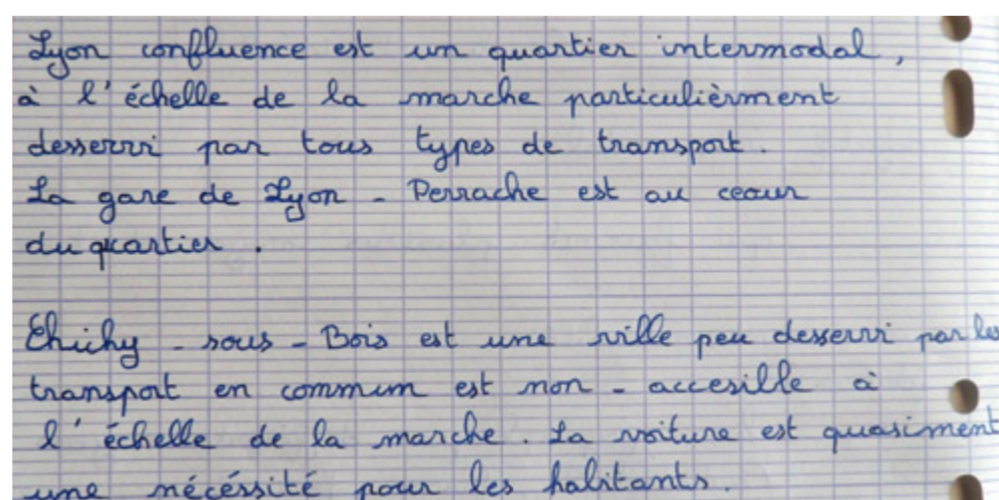 Lyon confluence est un quartier intermodal,
à l'échelle de la marche particulièrment
desserri par tous types de transport.
La gare de Lyon - Perrache est au ceour
du qcartier.
Chichy - sous - Bois est une ville peu desservi par les
transport en commun est non - accesible à
l'échelle de la marche. La voiture est quasiment
une nécéssité pour les habitants.